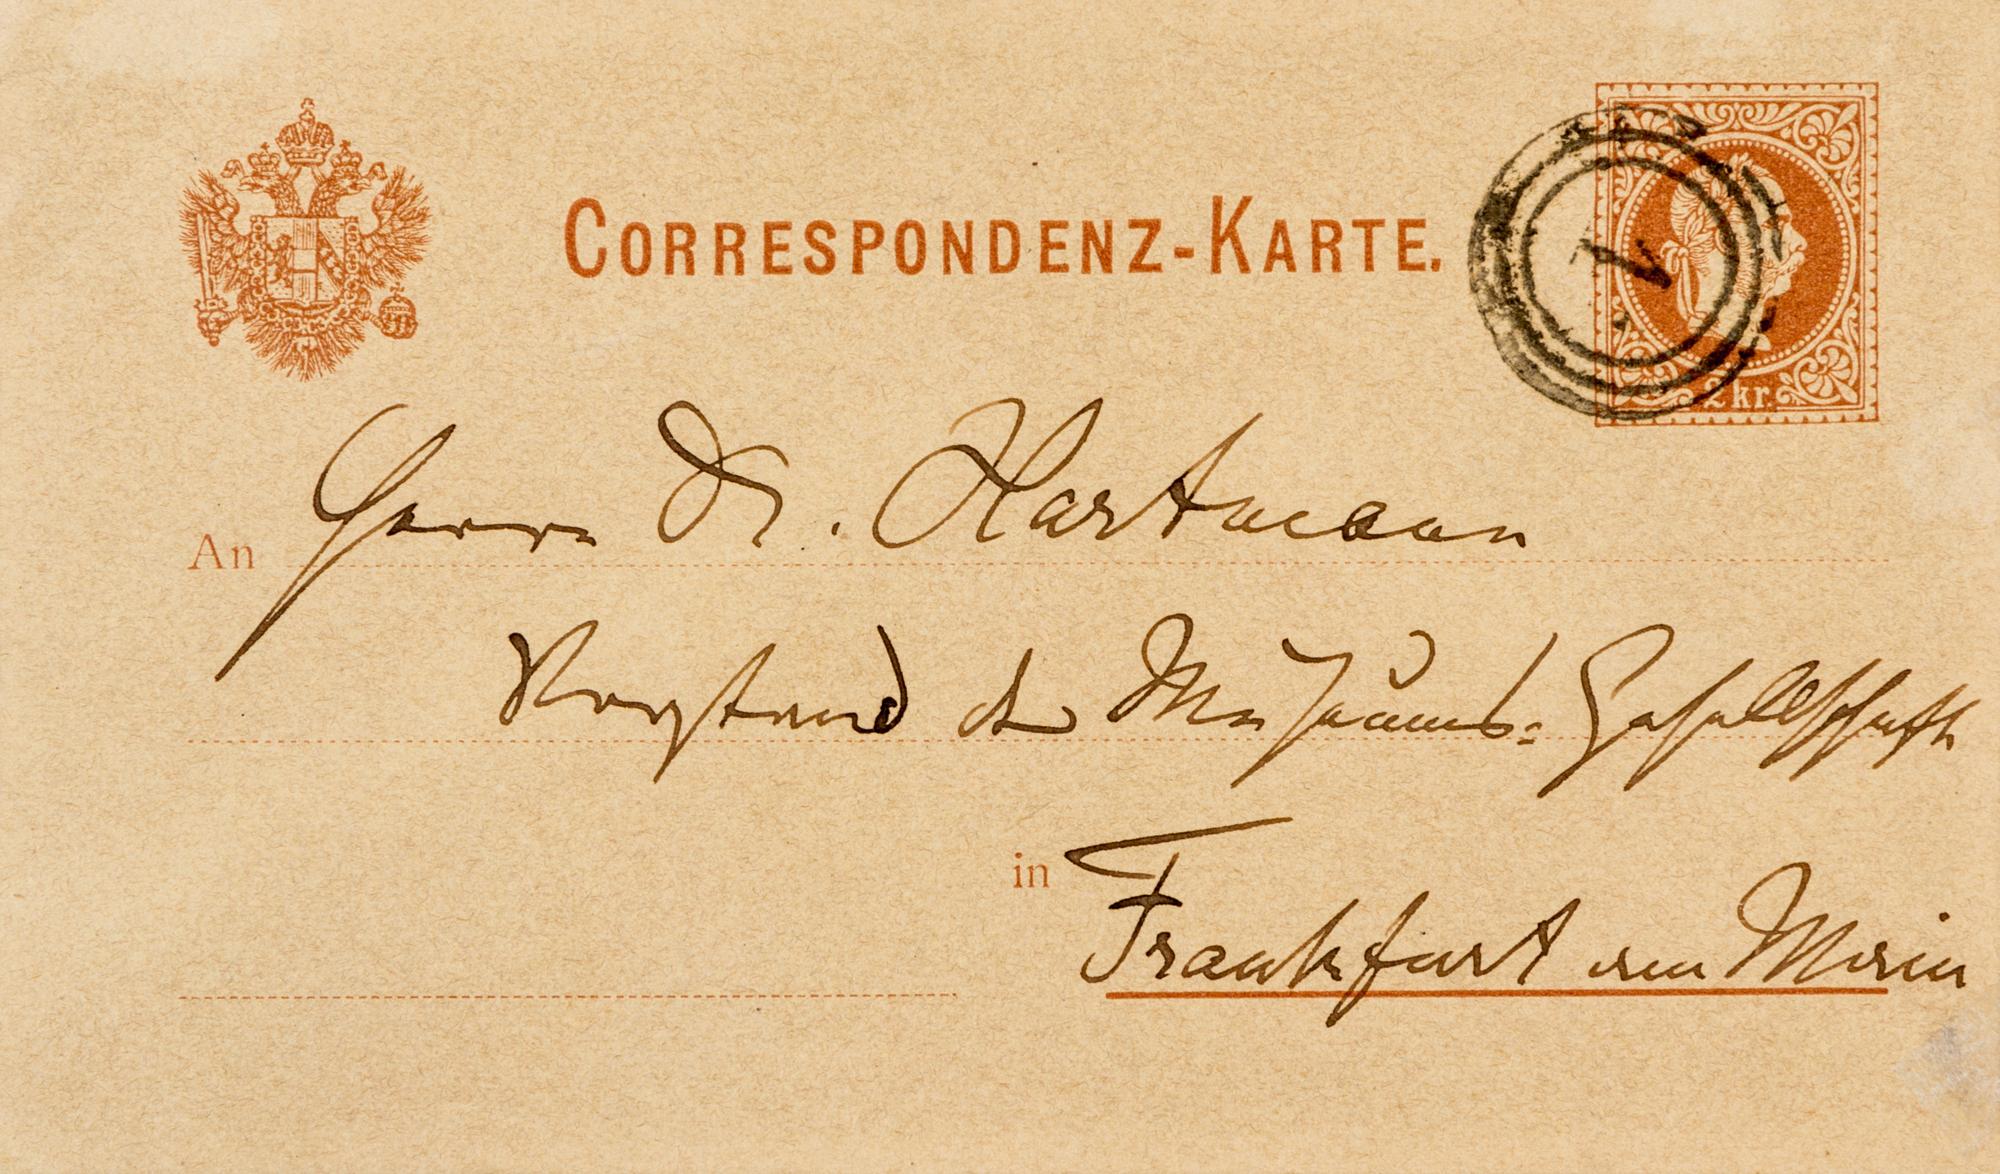 CORRESPONDENZ-KARTE.
2 kr.
An Herrn Dr. Hartmann
Vorstand der Museums-Gesellschaft
in Frankfurt am Main